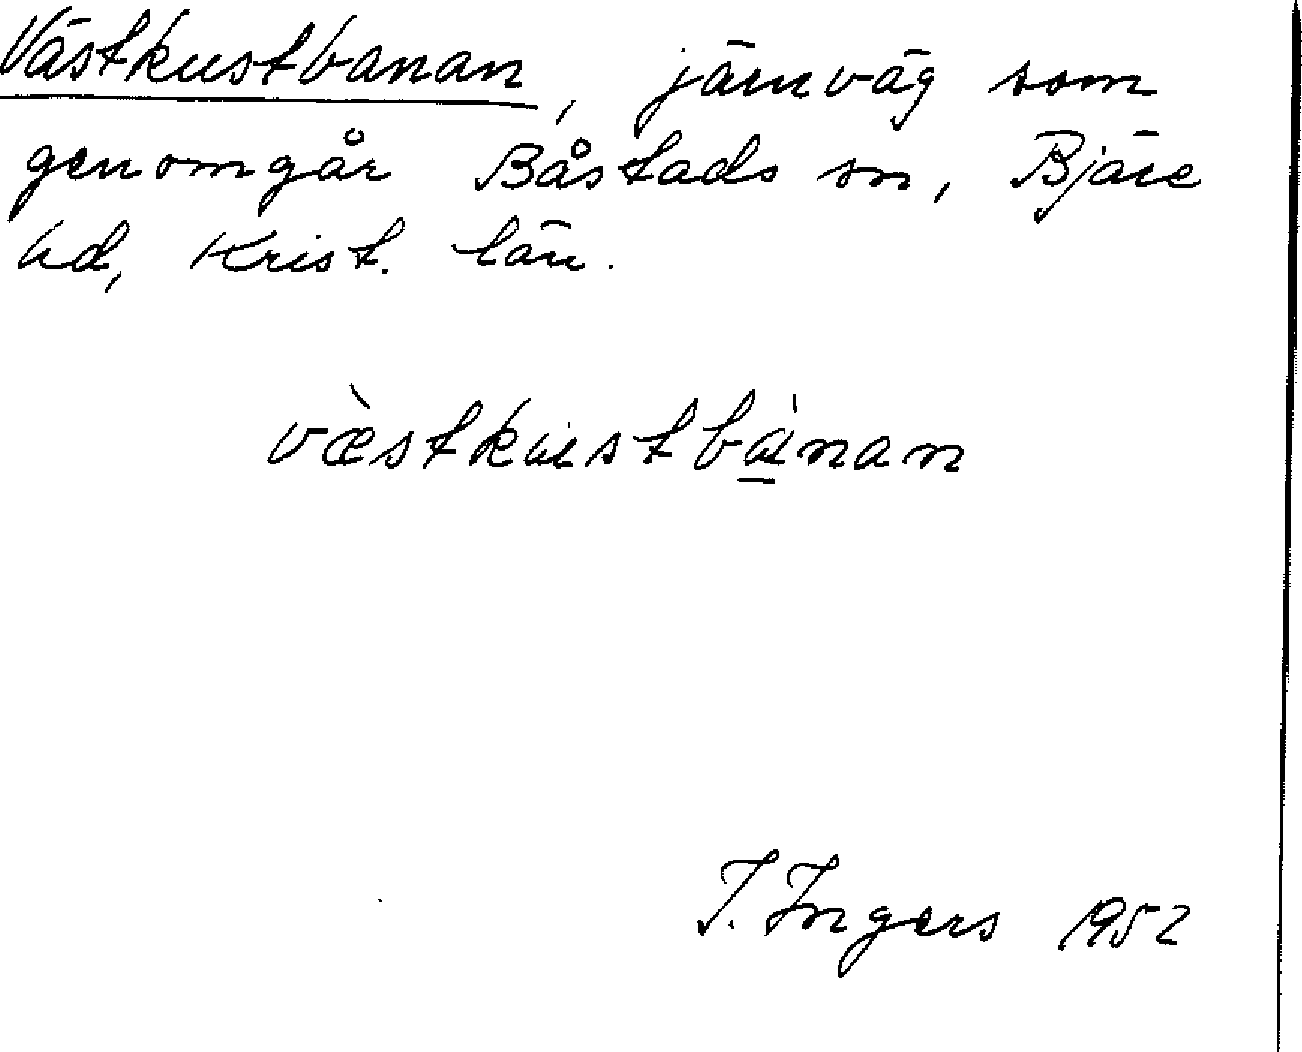 Västkustbanan, järnväg som
genomgår Båstads sn, Bjäre
hd, Krist. län.
væ̀stkustbà̱nan
I. Ingers 1952